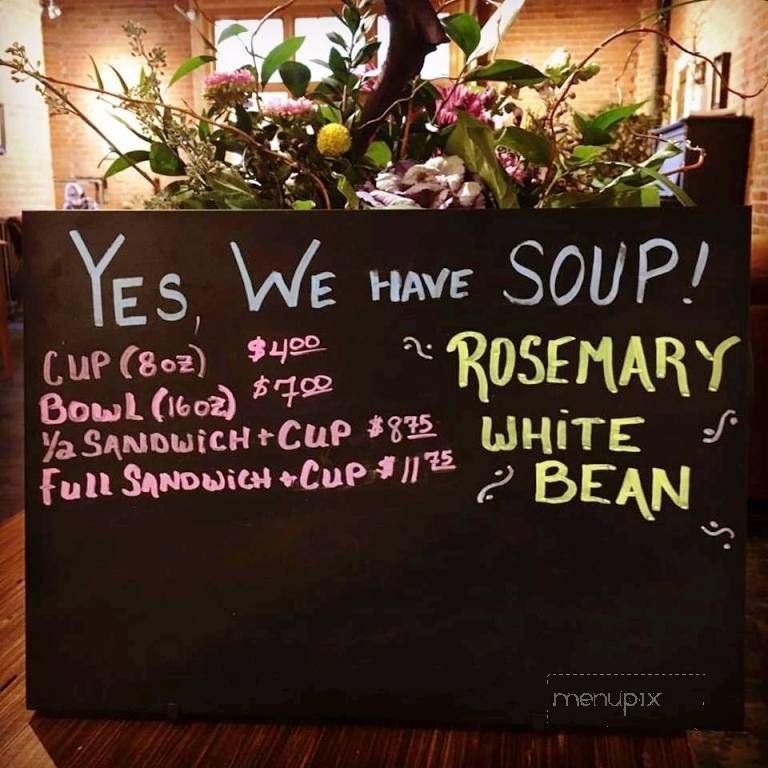 YES, WE HAVE SOUP!
CUP (8oz) $4.00
BOWL (16oz) $7.00
1/2 SANDWiCH + CUP $8.75
FULL SANDWiCH + CUP $11.75
ROSEMARY
WHiTE
BEAN
menupix